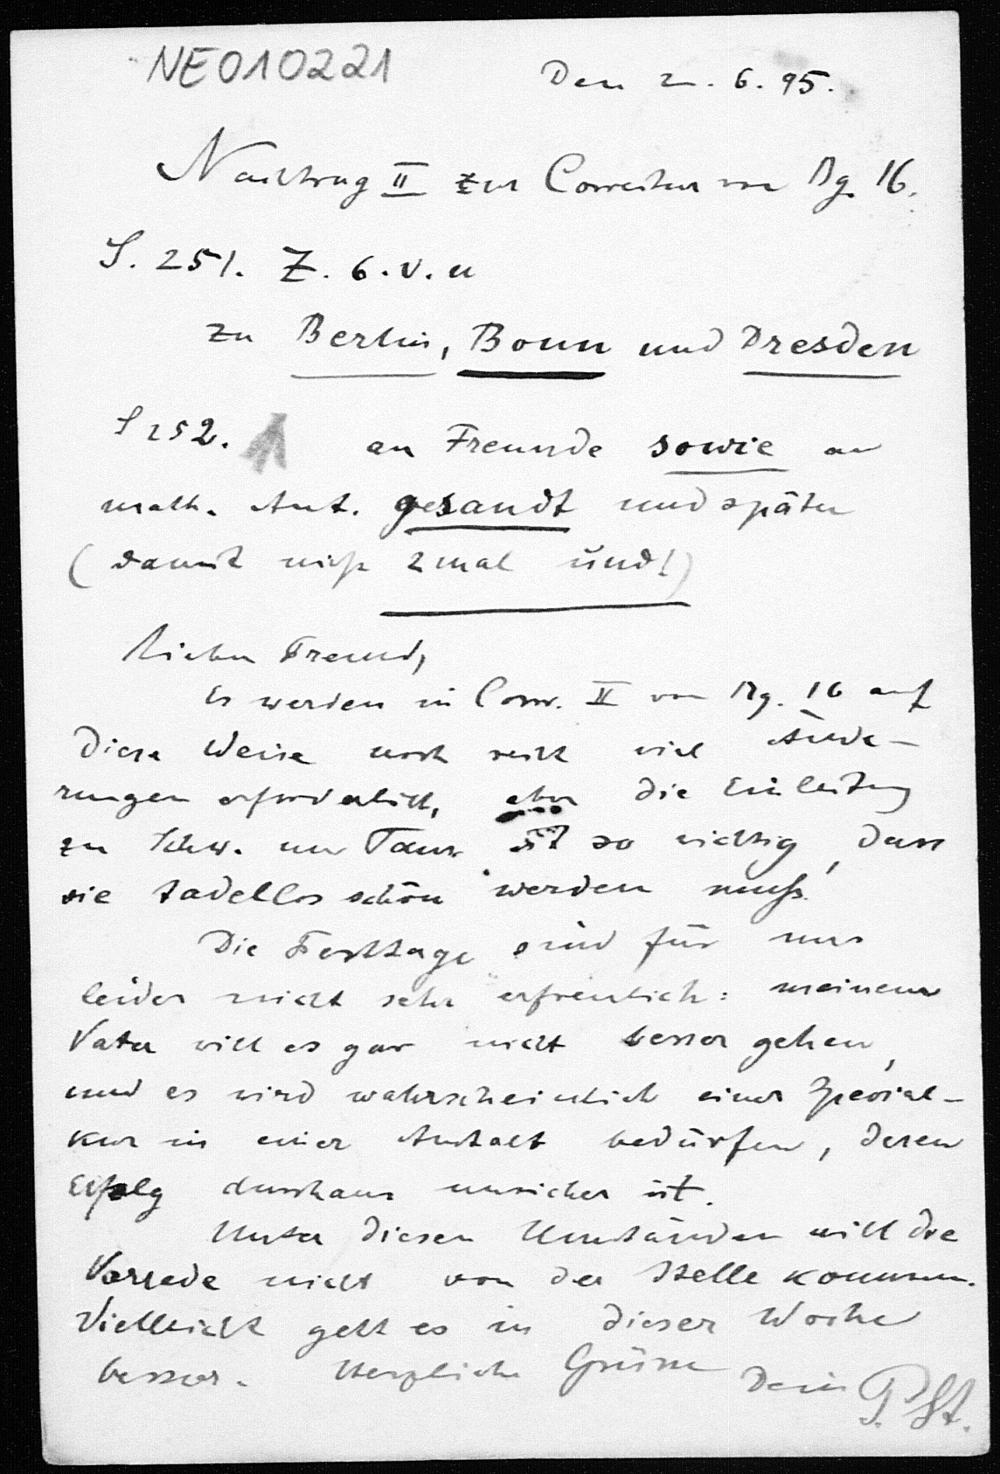 NE010221
Den 2. 6. 95.
Nachtrag II zur Correctur von Bg. 16.
S. 251. Z. 6. v. u
zu Berlin, Bonn und Dresden
S 252. an Freunde sowie an
math. Anst. gesandt und später
(damit nicht 2 mal und!)
Lieber Freund,
Es werden in Corr. II von Bg. 16 auf
diese Weise noch recht viel Ände-
rungen erforderlich, aber die Einleitung
zu Schw. und Taur ist so wichtig, dass
sie tadellos schön werden muß.
Die Festtage sind für uns
leider nicht sehr erfreulich: meinem
Vater will es gar nicht besser gehen,
und es wird wahrscheinlich einer Special-
kur in einer Anstalt bedürfen, deren
Erfolg durchaus unsicher ist.
Unter diesen Umständen will die
Vorrede nicht von der Stelle kommen.
Vielleicht geht es in dieser Woche
besser. Herzliche Grüsse Dein P. St.